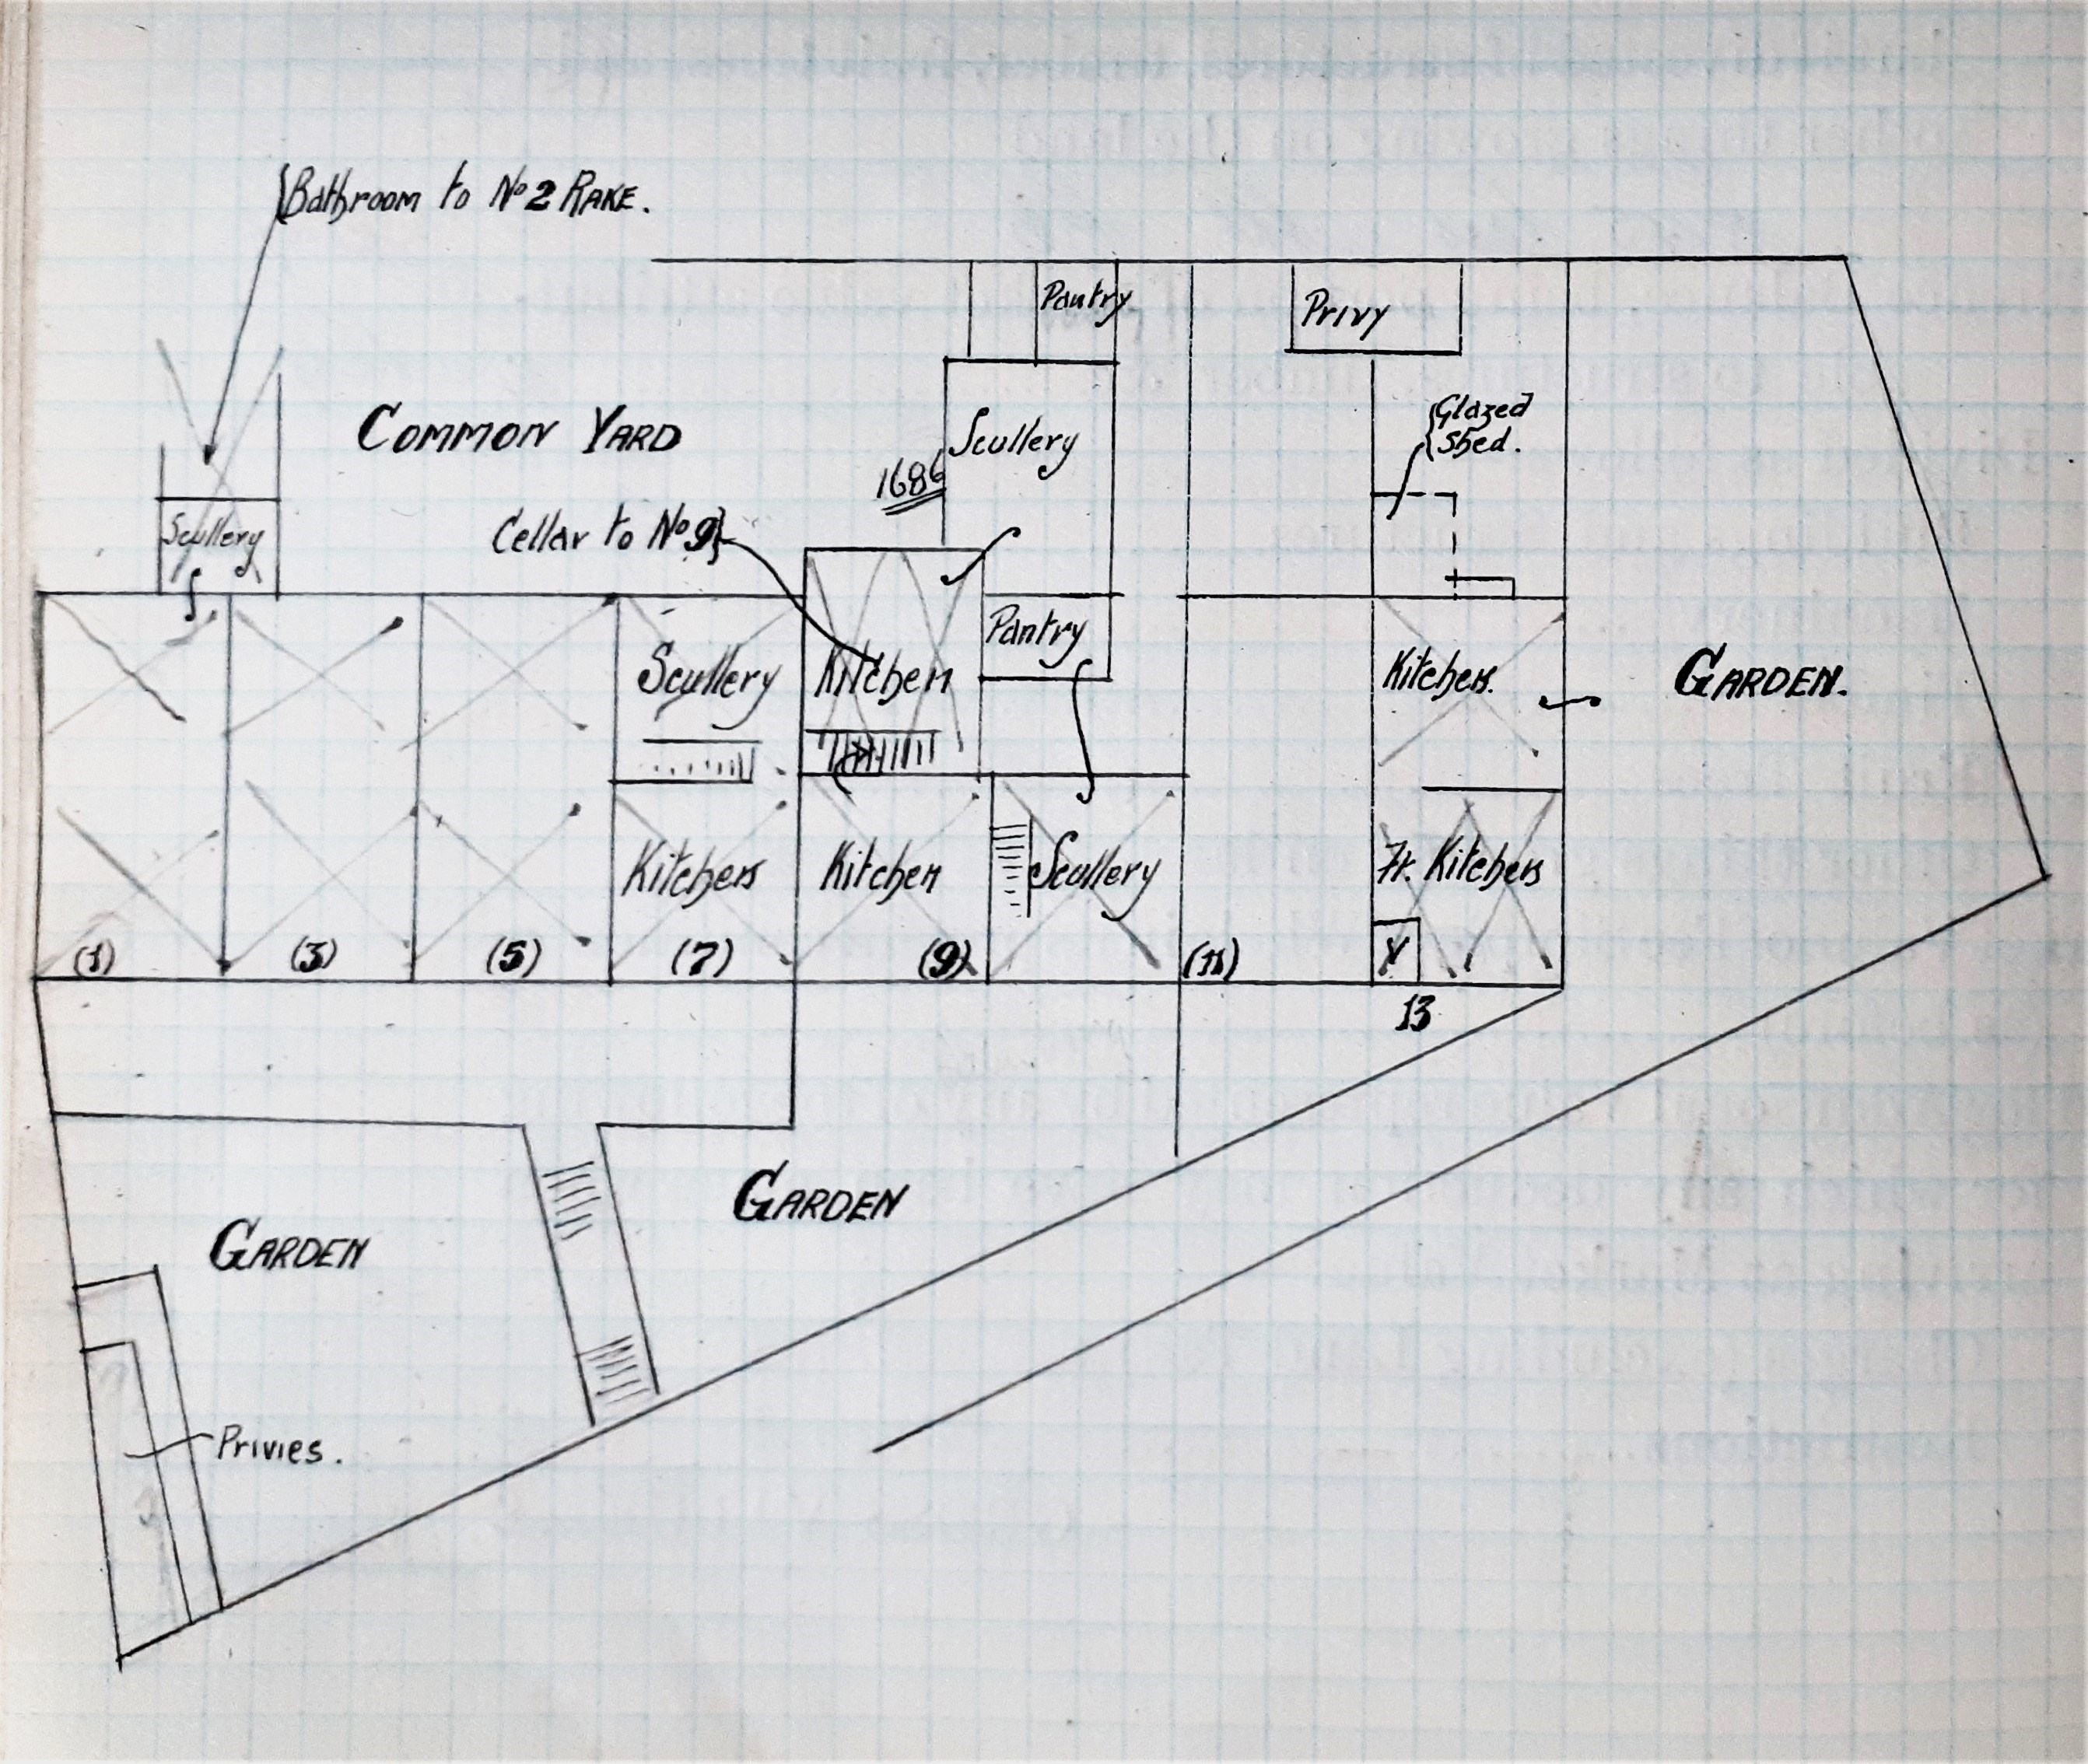 Bathroom to No 2 RAKE.
Pantry
Privy
COMMON YARD
Scullery
Glazed
Shed.
1686
Scullery
Cellar to No 9
Pantry
Scullery
Kitchen
Kitchen.
GARDEN.
Kitchen
Kitchen
Scullery
Ft. Kitchen
(1)
(3)
(5)
(7)
(9)
(11)
V
13
GARDEN
GARDEN
Privies.